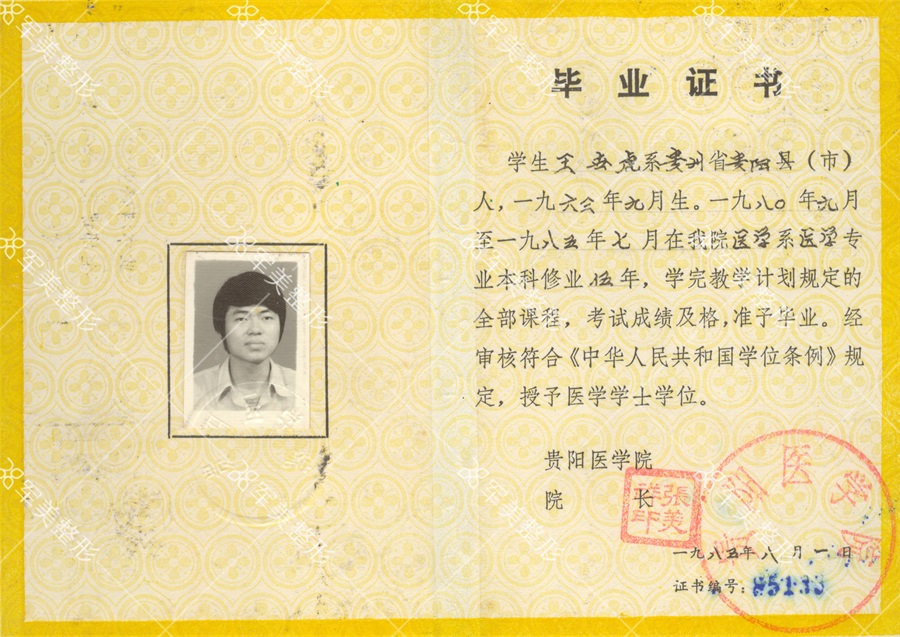 毕业证书
学生王 虎系贵州省贵阳县（市）
人，一九六三年九月生。一九八〇年九月
至一九八五年七月在我院医学系医学专
业本科修业伍年，学完教学计划规定的
全部课程，考试成绩及格，准予毕业。经
审核符合《中华人民共和国学位条例》规
定，授予医学学士学位。
贵阳医学院
院 长
張美祥印
贵阳医学院
一九八五年八月一日
证书编号：85133
军美整形